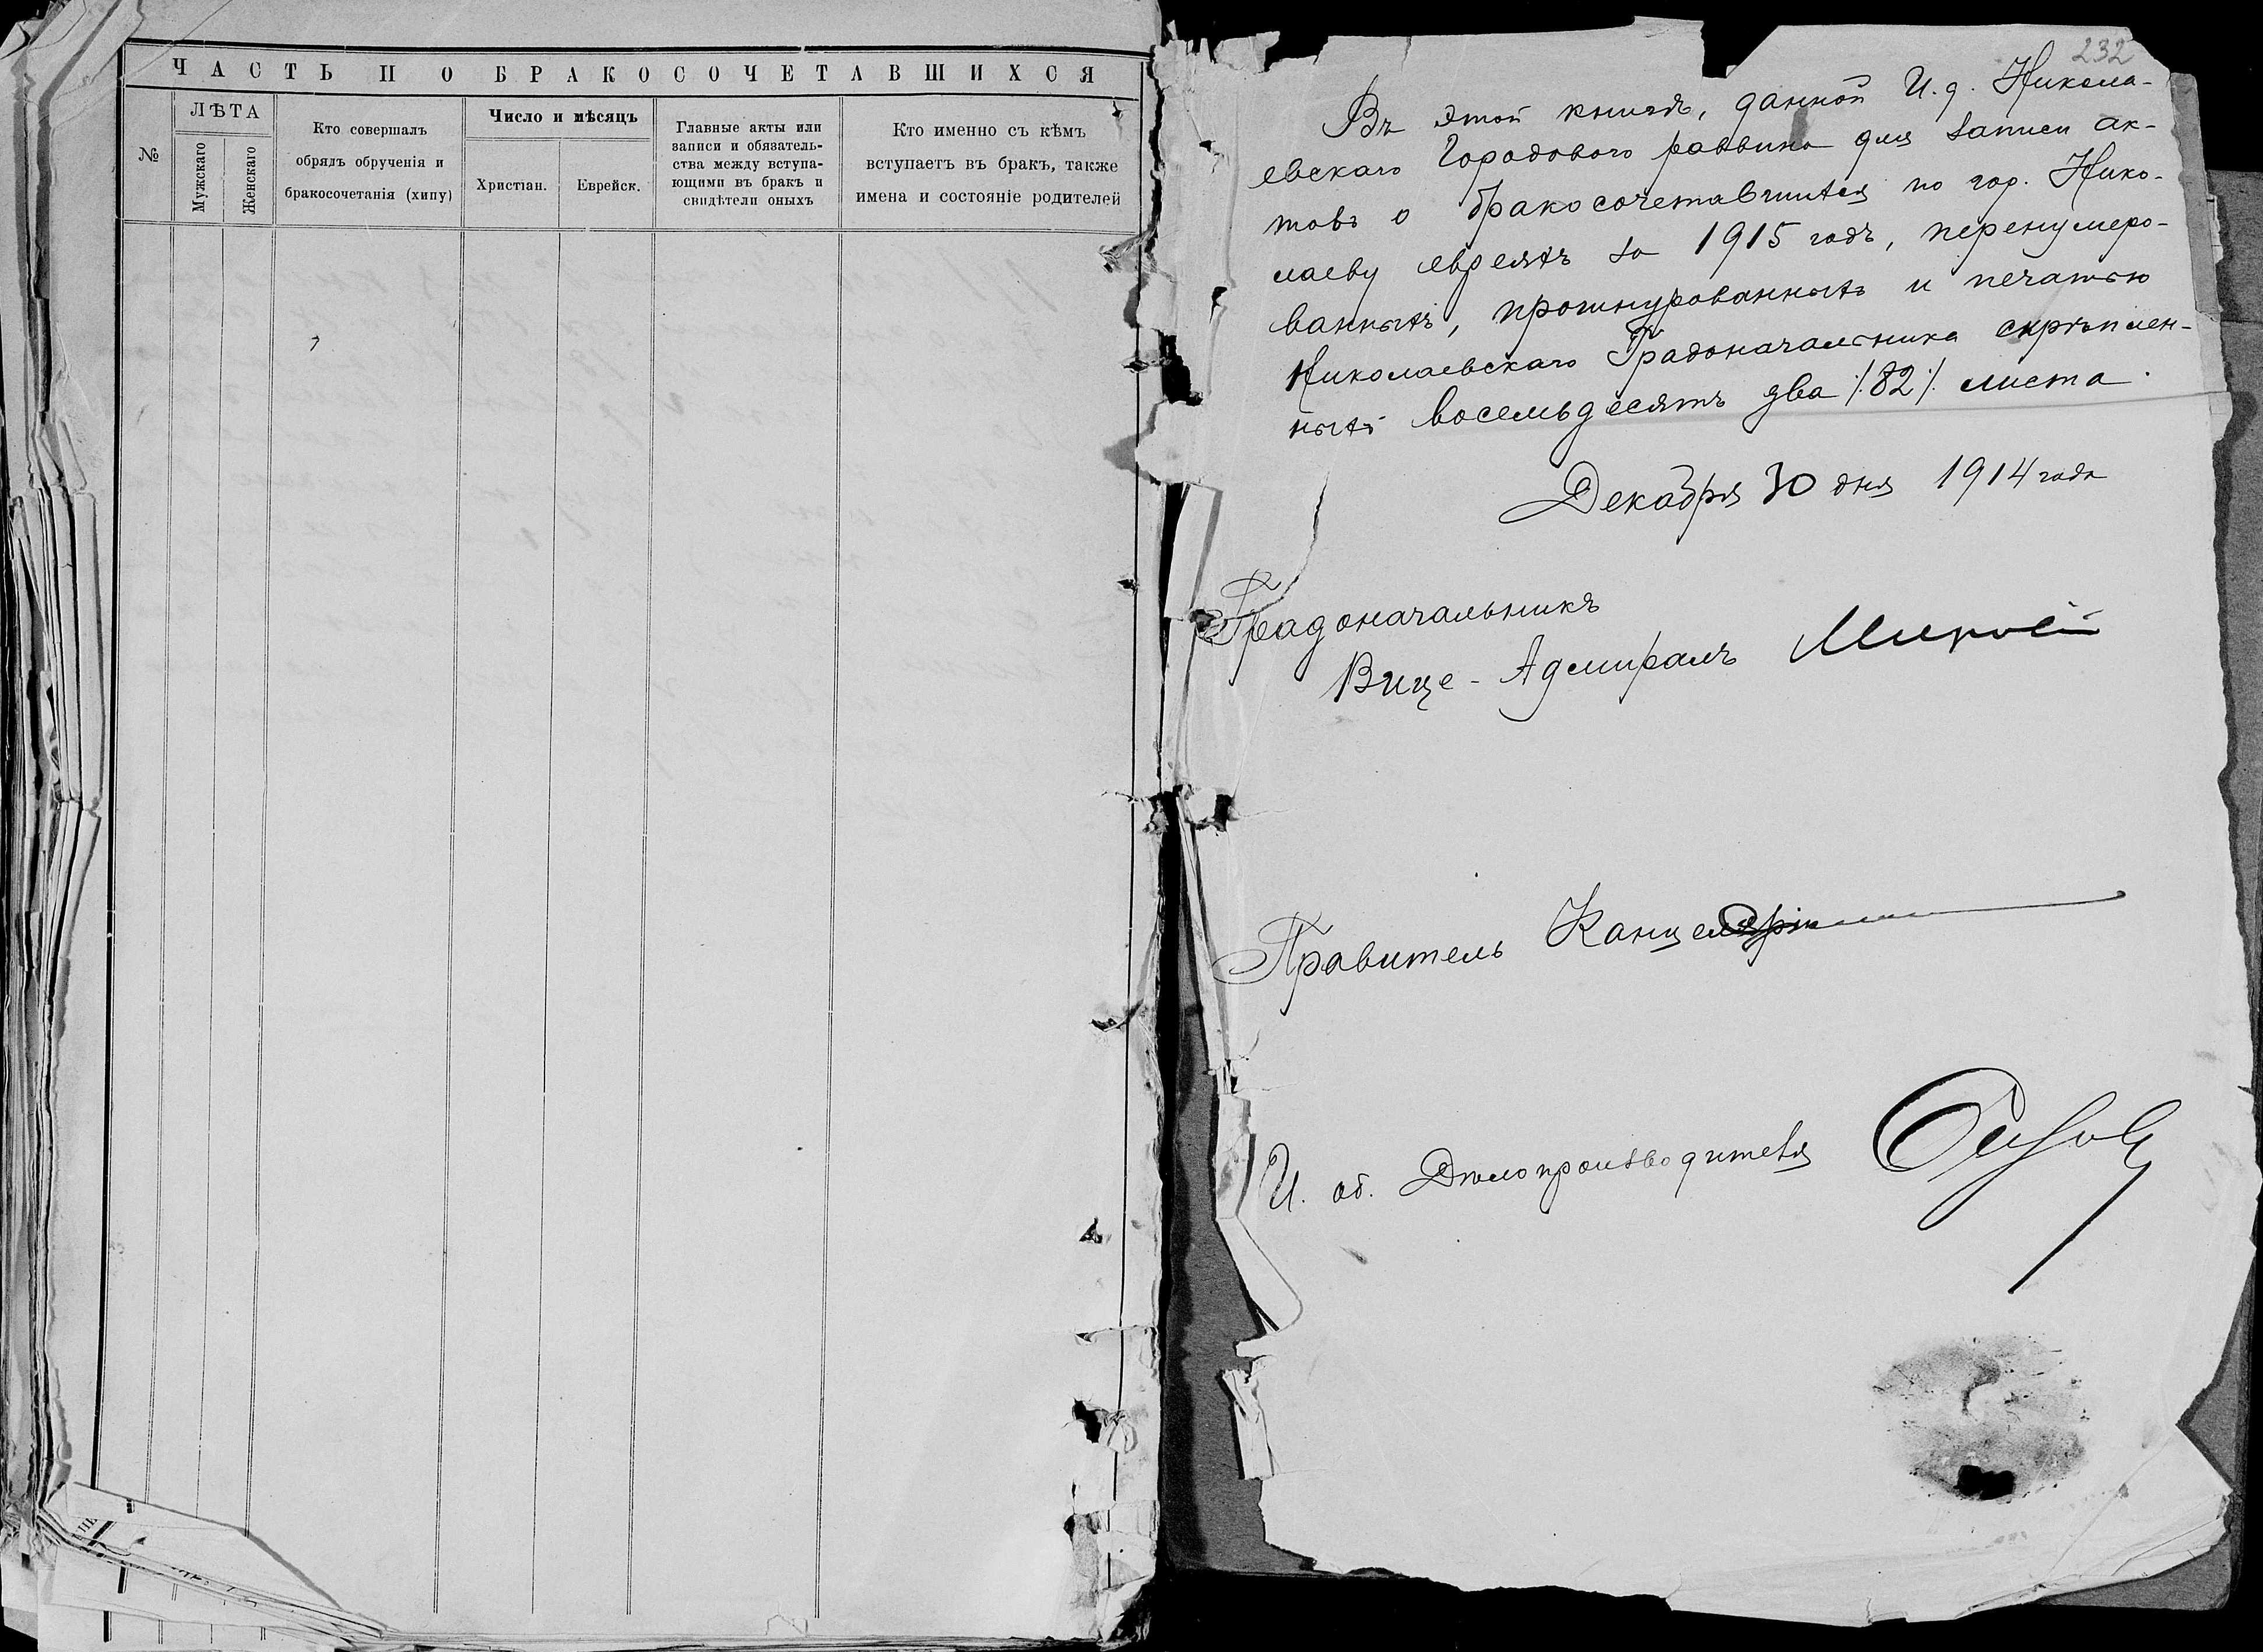 ЧАСТЬ II О БРАКОСОЧЕТАВШИХСЯ
№
ЛѢТА
Мужскаго
Женскаго
Кто совершалъ
обрядъ обрученія и
бракосочетанія (хипу)
Число и мѣсяцъ
Христіан.
Еврейск.
Главные акты или
записи и обязатель-
ства между вступа-
ющими въ бракъ и
свидѣтели оныхъ
Кто именно съ кѣмъ
вступаетъ въ бракъ, также
имена и состояніе родителей
232
Въ этой книгѣ, данной И. д. Никола-
евскаго Городового раввина для записи ак-
товъ о бракосочетавшихся по гор. Нико-
лаеву евреяхъ за 1915 годъ, перенумеро-
ванныхъ, прошнурованныхъ и печатью
Николаевскаго Градоначальника скрѣплен-
ныхъ восемьдесятъ два /:82:/ листа.
Декабря 30 дня 1914 года
Градоначальникъ
Вице-Адмиралъ
Правитель Канцеляріи
И. об. Дѣлопроизводителя